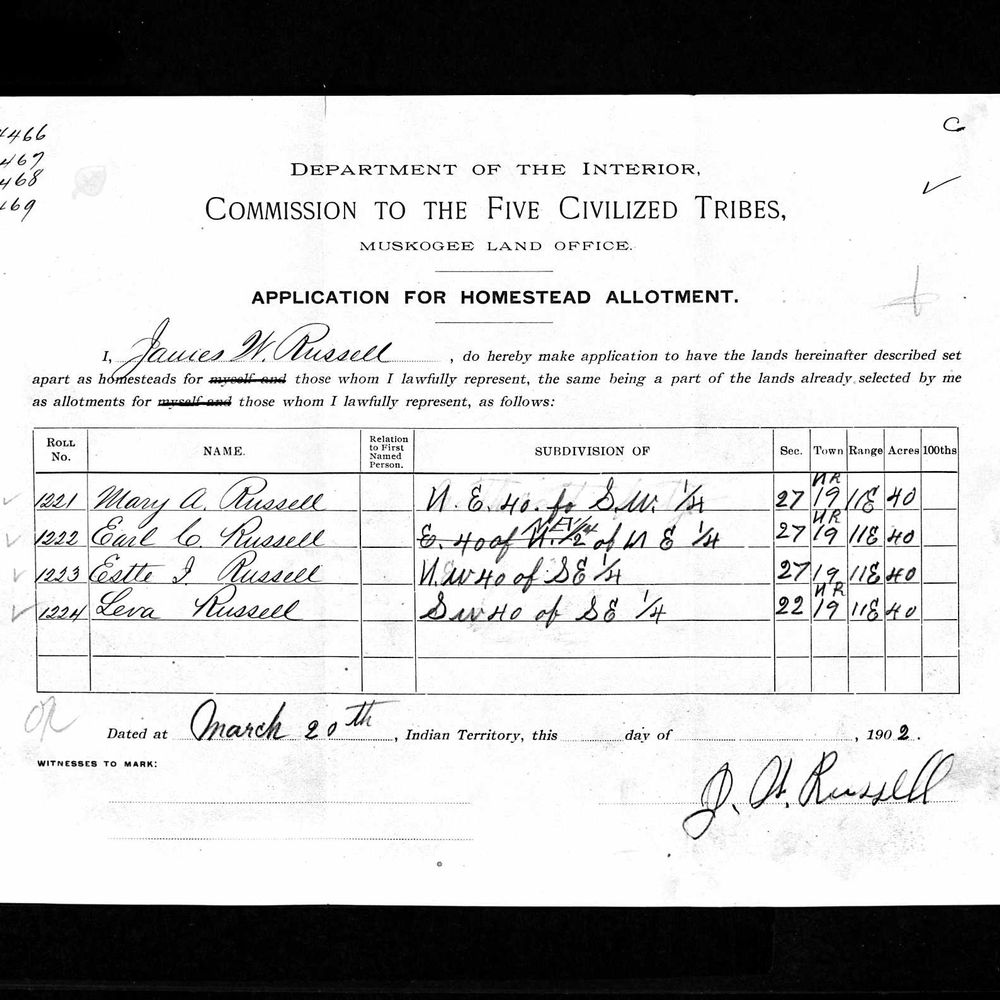 4466
467
468
469
C
DEPARTMENT OF THE INTERIOR,
COMMISSION TO THE FIVE CIVILIZED TRIBES,
MUSKOGEE LAND OFFICE.
APPLICATION FOR HOMESTEAD ALLOTMENT.
I, James W. Russell, do hereby make application to have the lands hereinafter described set
apart as homesteads for myself and those whom I lawfully represent, the same being a part of the lands already selected by me
as allotments for myself and those whom I lawfully represent, as follows:
ROLL No. NAME. Relation to First Named Person. SUBDIVISION OF Sec. Town Range Acres 100ths
1221 Mary A. Russell N. E. 40. fo S.W. 1/4 27 19 11E 40
1222 Earl C. Russell E. 40 of of N E 1/4 27 19 11E 40
1223 Estte I Russell N.W 40 of SE 1/4 27 19 11E 40
1224 Leva Russell S W 40 of SE 1/4 22 19 11E 40
Dated at March 20th, Indian Territory, this day of , 1902.
WITNESSES TO MARK:
J. W. Russell